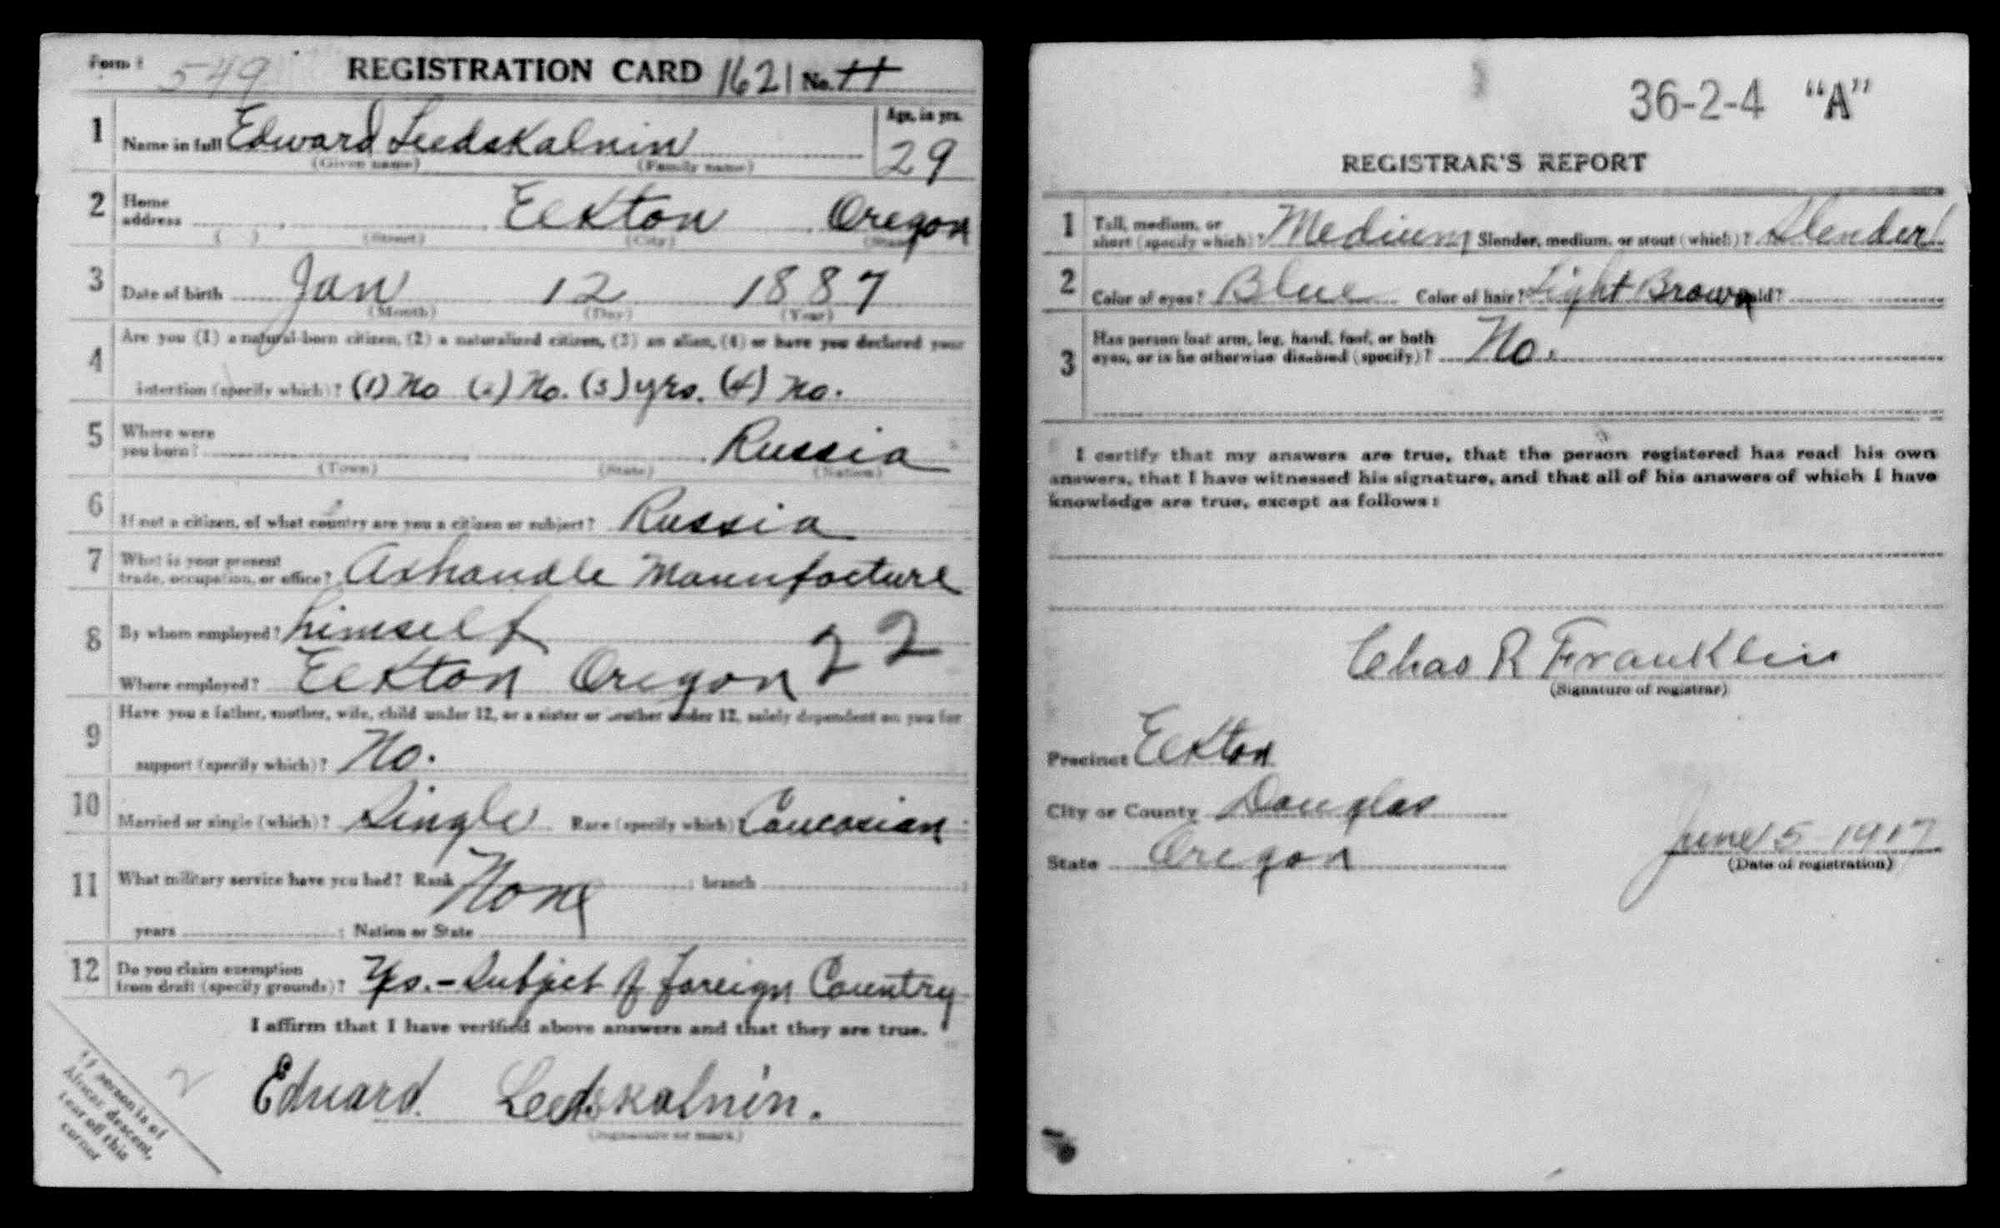 Form 1 549 REGISTRATION CARD 1621 No. 11
1 Name in full Edward Leedskalnin Age, in yrs. 29
(Given name) (Family name)
2 Home address Eckton Oregon
(Street) (City) (State)
3 Date of birth Jan 12 1887
(Month) (Day) (Year)
4 Are you (1) a natural-born citizen, (2) a naturalized citizen, (3) an alien, (4) or have you declared your
intention (specify which)? (1) No (2) No. (3) yes. (4) No.
5 Where were you born? Russia
(Town) (State) (Nation)
6 If not a citizen, of what country are you a citizen or subject? Russia
7 What is your present trade, occupation, or office? Axhandle Manufacture
8 By whom employed? himself 22
Where employed? Eckton Oregon
9 Have you a father, mother, wife, child under 12, or a sister or brother under 12, solely dependent on you for
support (specify which)? No.
10 Married or single (which)? Single Race (specify which) Caucasian
11 What military service have you had? Rank None ; branch ;
years ; Nation or State
12 Do you claim exemption from draft (specify grounds)? Yes. - Subject of foreign Country
I affirm that I have verified above answers and that they are true.
2 Edward. Leedskalnin.
(Signature or mark)
If person is of
African descent,
tear off this
corner
36-2-4 "A"
REGISTRAR'S REPORT
1 Tall, medium, or short (specify which)? Medium Slender, medium, or stout (which)? Slender
2 Color of eyes? Blue Color of hair? Light Brown Bald?
3 Has person lost arm, leg, hand, foot, or both eyes, or is he otherwise disabled (specify)? No.
I certify that my answers are true, that the person registered has read his own
answers, that I have witnessed his signature, and that all of his answers of which I have
knowledge are true, except as follows:
Chas R Franklin
(Signature of registrar)
Precinct Eckton
City or County Douglas
State Oregon
June 5 1917
(Date of registration)